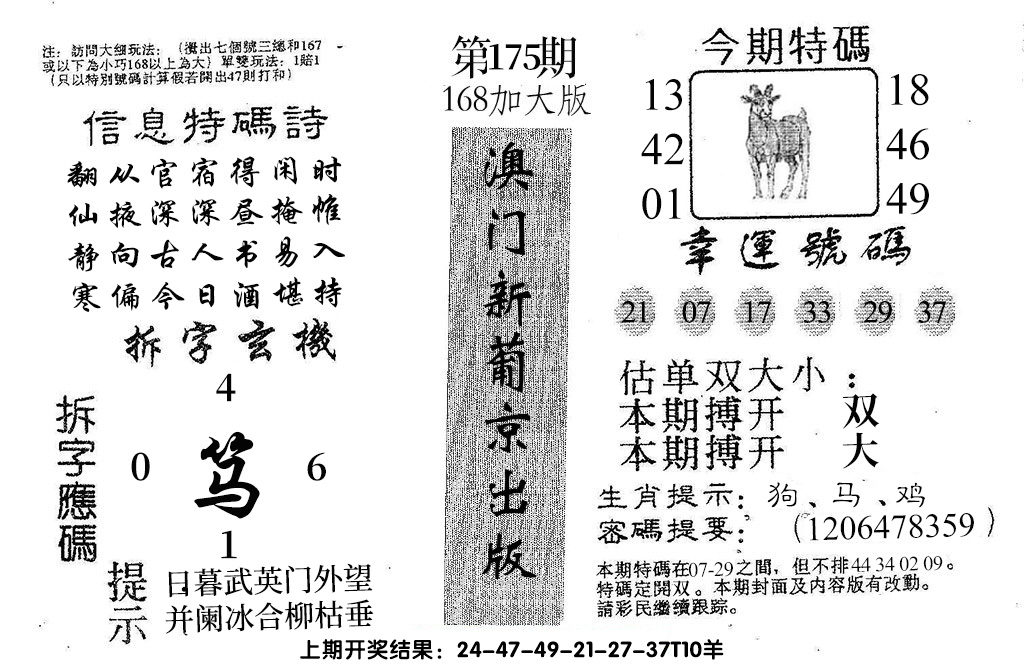 注：訪問大细玩法：（攪出七個號三總和167
或以下為小巧168以上為大）單雙玩法：1賠1
（只以特別號碼計算假若開出47則打和）
信息特碼詩
翻从官宿得闲时
仙掖深深昼掩惟
静向古人书易入
寒偏今日酒堪持
拆字玄機
拆字應碼
4
0 笃 6
1
提示
日暮武英门外望
并阑冰合柳枯垂
第175期
168加大版
澳门新葡京出版
今期特碼
13 18
42 46
01 49
幸運號碼
21 07 17 33 29 37
估单双大小：
本期搏开 双
本期搏开 大
生肖提示：狗、马、鸡
密碼提要：（1206478359）
本期特碼在07-29之間，但不排44 34 02 09。
特碼定開双。本期封面及内容版有改動。
請彩民繼續跟踪。
上期开奖结果：24-47-49-21-27-37T10羊